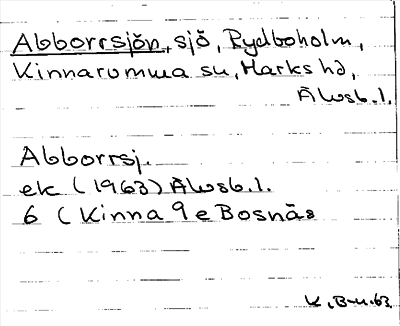 Abborrsjön, sjö, Rydboholm,
Kinnarumma sn, Marks hd,
Älvsb. l.
Abborrsj.
ek (1963) Älvsb. l.
6 (Kinna 9 e Bosnäs
K. B-n. 63